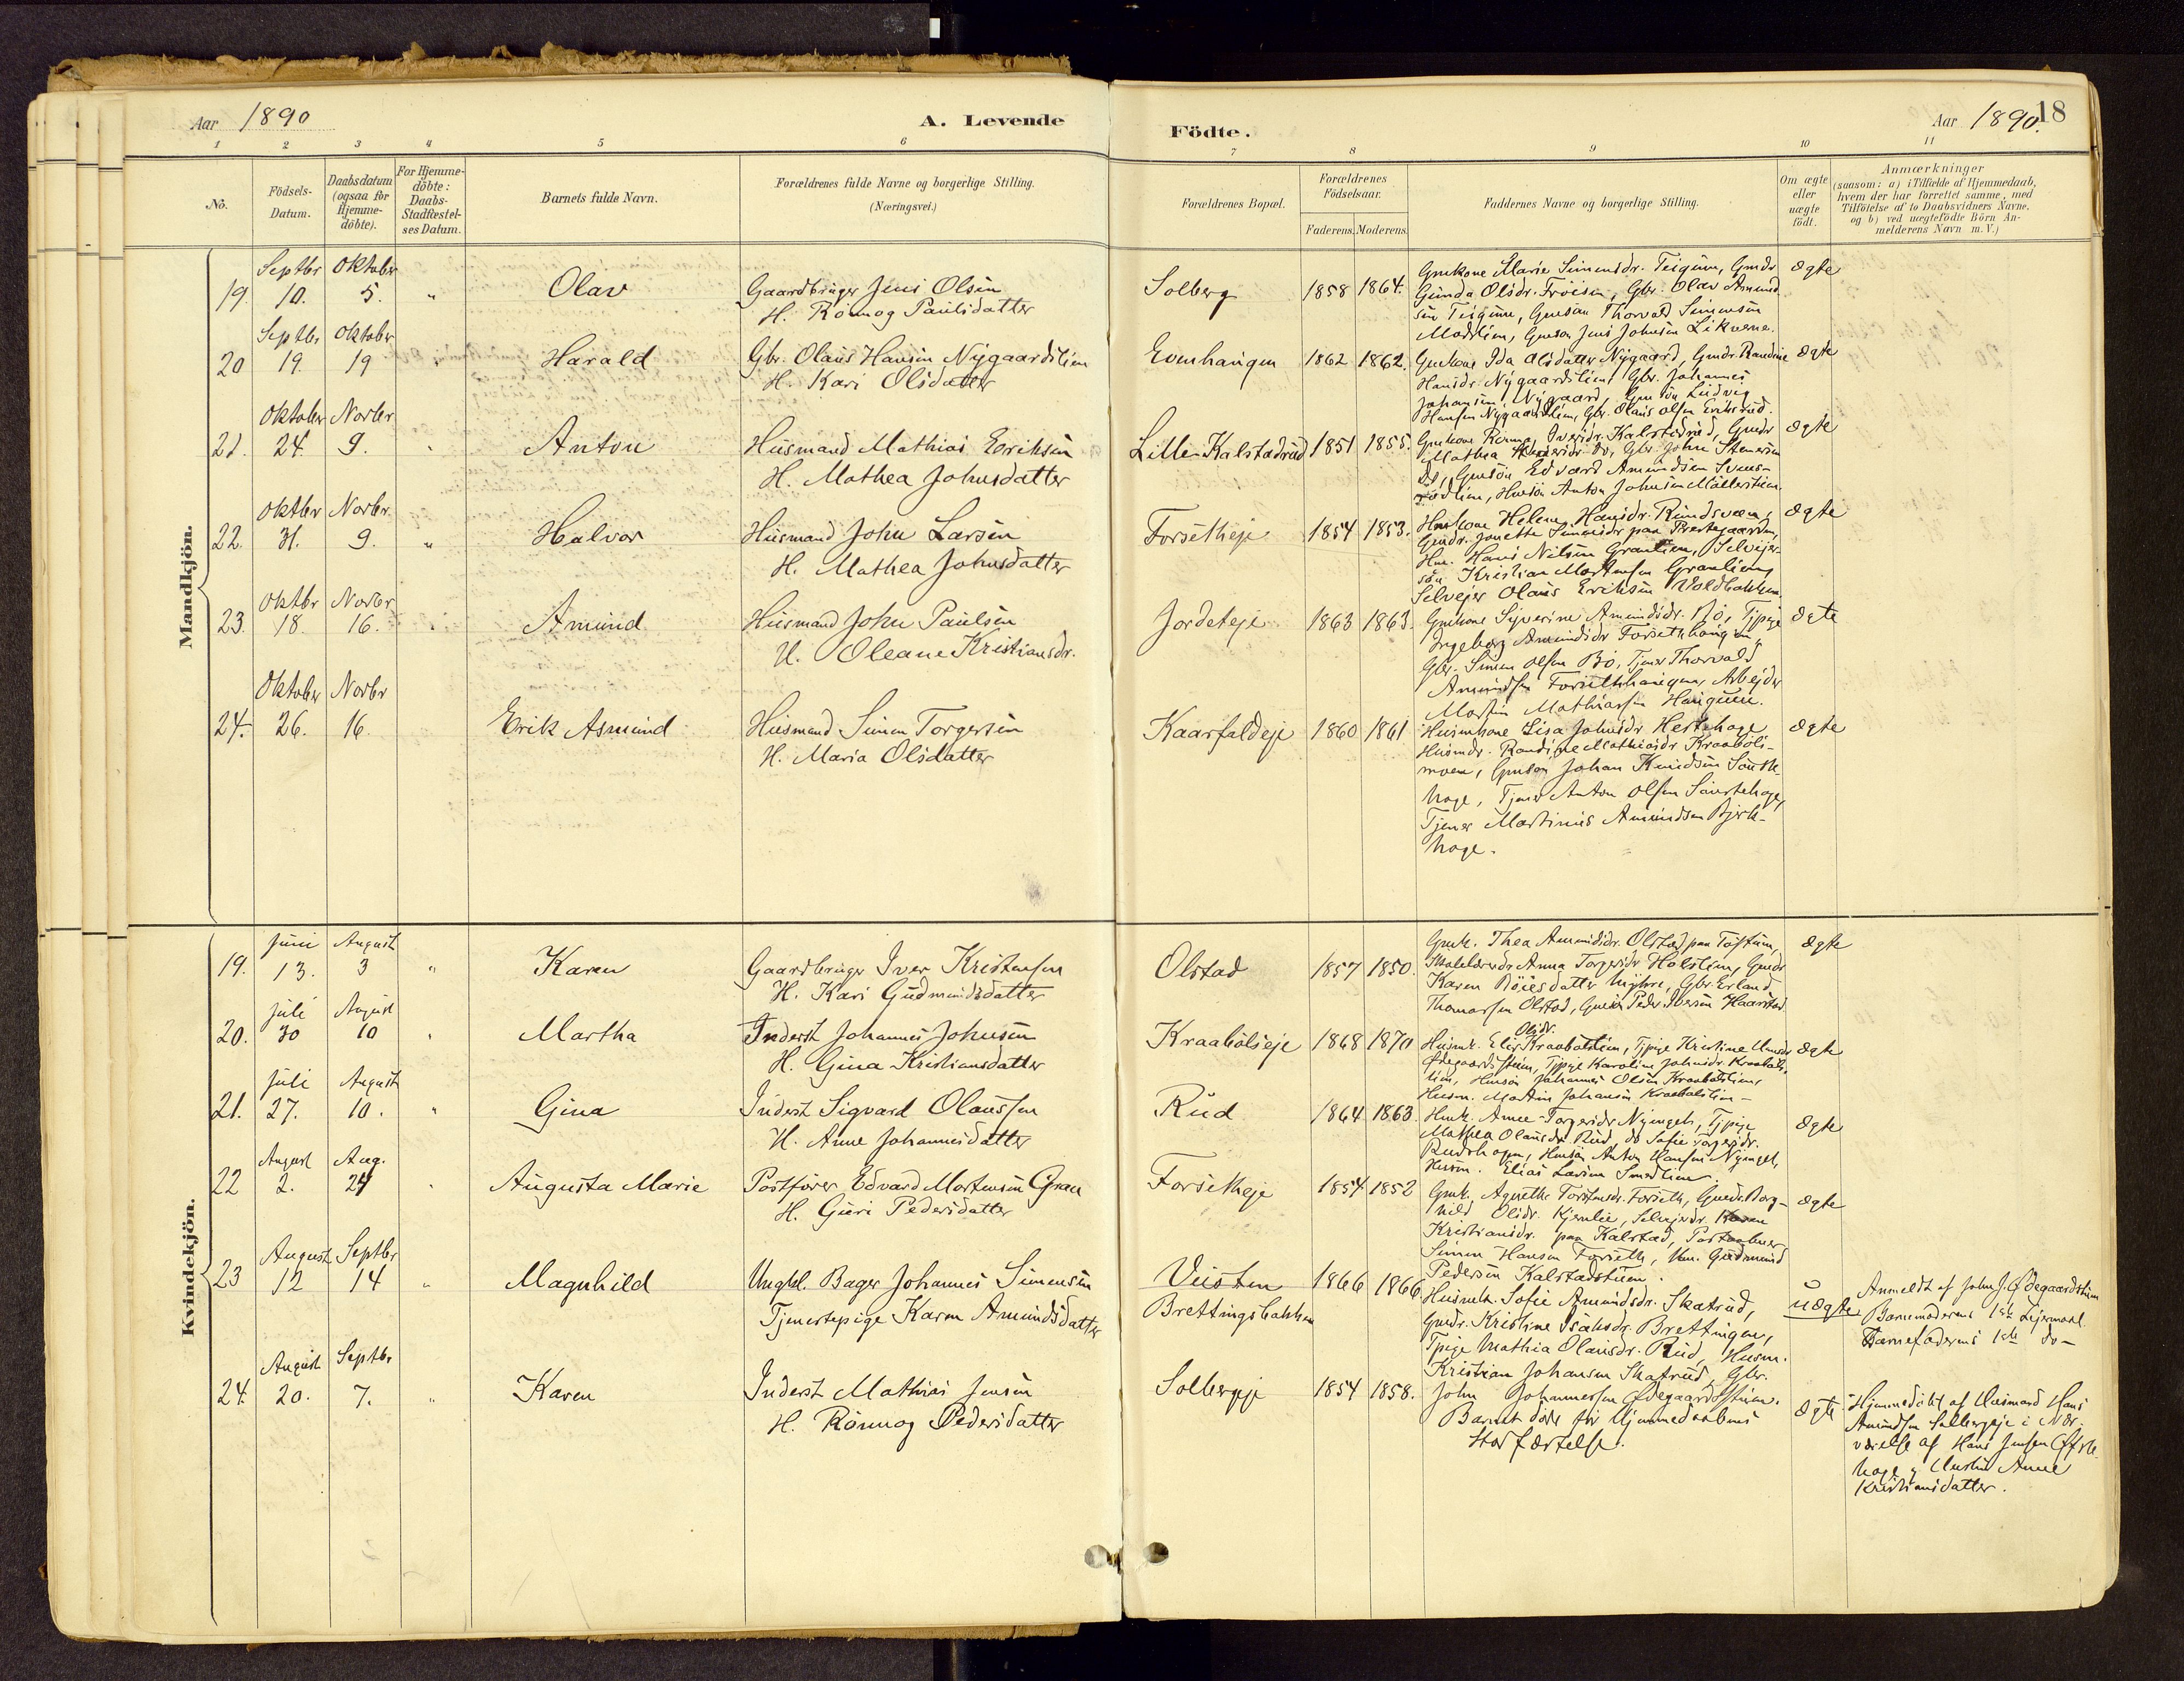 Aar 1890
A. Levende
Födte.
Aar 1890.
18
1 2 3 4 5 6 7 8 9 10 11
No.
Födsels-
Datum.
Daabsdatum
(ogsaa for
Hjemme-
döbte).
For Hjemme-
döbte:
Daabs-
Stadfæstel-
ses Datum.
Barnets fulde Navn.
Forældrenes fulde Navne og borgerlige Stilling.
(Næringsvei.)
Forældrenes Bopæl.
Forældrenes
Födselsaar.
Faderens. Moderens.
Faddernes Navne og borgerlige Stilling.
Om ægte
eller
uægte
födt.
Anmærkninger
(saasom: a) i Tilfælde af Hjemmedaab,
hvem der har forrettet samme, med
Tilföielse af to Daabsvidners Navne.
og b) ved uægtefödte Börn An-
melderens Navn m. V.)
Mandkjön.
Septbr Oktober
19. 10. 5. " Olav
Gaardbruger Jens Olsen
H. Rönnog Paulsdatter
Solberg 1858 1864.
Gmkone Marie Simensdr. Teigum, Gmdr
Gunda Olsdr. Fröisen, Gbr. Olav Amund
sen Teigum, Gmsön Thorvald Simensen
Modtlien, Gmsön Jens Johnsen Likverne.
ægte
Septbr Oktober
20 19. 19 " Harald
Gbr. Olaus Hansen Nygaardslien
H. Kari Olsdatter
Evenhaugen 1862 1862.
Gmkone Ida Olsdatter Nygaard, Gmdr. Randine
Hansdr. Nygaardslien, Gbr. Johannes
Johansen Nygaard, Gmsön Ludvig
Hansen Nygaardslien, Gbr. Olaus Olsen Eriksrud.
ægte
Oktober Novbr
21. 24. 9. " Anton
Husmand Mathias Eriksen
H. Mathea Johnsdatter
Lille-Kalstadrud 1851 1855.
Gmkone Ronna Iversdr. Kalstadrud, Gmdr
Mathea do, Gbr. John Stenersen
do, Gmsön Edvard Amundsen Svens-
rudlien, Hmsön Anton Johnsen Möllerstuen
ægte
Oktbr Novbr.
22. 31. 9. " Halvor
Husmand John Larsen
H. Mathea Johnsdatter
Forsetheje 1854 1853.
Hmkone Helene Hansdr. Rundsveen,
Gmdr. Jonette Simensdr paa Prestegaarden,
Hm. Hans Nilsen Granlien, Selvejer-
sön Kristian Mortensen Granlien,
Selvejer Olaus Eriksen Voldbakken
ægte
Oktbr Novbr
23. 18. 16. " Amund
Husmand John Paulsen
H. Oleane Kristiansdr.
Jordeteje 1863 1863.
Gmkone Syverine Amundsdr. Bö, Tjpige
Ingeborg Amundsdr Forsethhaugen,
Gbr. Simen Olsen Bö, Tjener Thorvald
Amundsen Forsethhaugen, Arbejder
Martin Mathiassen Haugen.
ægte
Oktober Novbr
24. 26. 16. Erik Asmund
Husmand Simen Torgersen
H. Maria Olsdatter
Kaarfaldeje 1860 1861
Husmkone Lisa Johnsdr Hestehage
Husmdr. Randine Mathiasdr Kraaböls-
moen, Gmsön Johan Knudsen Sauste-
hage, Tjener Anton Olsen Saustehage,
Tjener Martinius Amundsen Bjerke-
hage.
ægte
Kvindekjön.
Juni August
19. 13. 3 " Karen
Gaardbruger Iver Kristensen
H. Kari Gudmundsdatter
Olstad 1857 1850.
Gmk. Thea Amundsdr. Olstad paa Toftum,
Skolelærerdr Anna Torgersdr Holslien, Gmdr
Karen Böiesdatter Myhre, Gbr. Erland
Thomassen Olstad, Gmsön Peder Iversen Haarstad
ægte
Juli August
20. 30 10 " Martha
Inderst Johannes Johnsen
H. Gina Kristiansdatter
Kraabölseje 1868 1870
Olsdr.
Husmk. Elise Kraabölslien, Tjpige Kristine
Ödegaardsstuen, Tjpige Karoline Johnsdr. Kraaböls-
lien, Hmsön Johannes Olsen Kraabölslien,
Husm. Martin Johansen Kraabölslien -
ægte
Juli August
21. 27. 10. " Gina
Inderst Sigvard Olaussen
H. Anne Johannesdatter
Rud 1864 1863.
Hmk. Anne Torgersdr Nyenget, Tjpige
Mathea Olausdr Rud, do Sofie Torgersdr.
Rudshagen, Hmsön Anton Hansen Nyenget,
Husm. Elias Larsen Smedlien.
ægte
August Aug.
22 2. 24 " Augusta Marie
Postförer Edvard Mortensen Grau
H. Guri Pedersdatter
Forsetheje 1854 1852
Gmk. Agnethe Torstensdr. Forseth, Gmdr. Borg-
hild Olsdr. Kjernlie, Selvejerdr. Karen
Kristiansdr. paa Kalstad, Postaabner
Simen Hansen Forseth, Hm. Gudmund
Pedersen Kalstadstuen.
ægte
August Septbr
23 12 14 " Magnhild
Ungkl. Bager Johannes Simensen
Tjenestepige Karen Amundsdatter
Veisten
Brettingsbakken
1866 1866.
Husmk. Sofie Amundsdr. Skatrud,
Gmdr. Kristine Isaksdr. Brettingen,
Tpige Mathia Olausdr. Rud, Husm.
Kristian Johansen Skatrud, Gbr.
John Johannessen Ödegaardsstuen.
uægte
Anmeldt af John J. Ödegaardstuen
Barnemoderens 1ste Lejermaal.
Barnefaderens 1ste do -
August Septbr
24. 20. 7. " Karen
Inderst Mathias Jensen
H. Rönnog Pedersdatter
Solbergeje 1854 1858.
Barnet döde för Hjemmedaabens
Stadfæstelse.
ægte
Hjemmedöbt af Husmand Hans
Amundsen Solbergeje i Nær-
værelse af Hans Jensen
hage og Hustru Anne
Kristiansdatter.